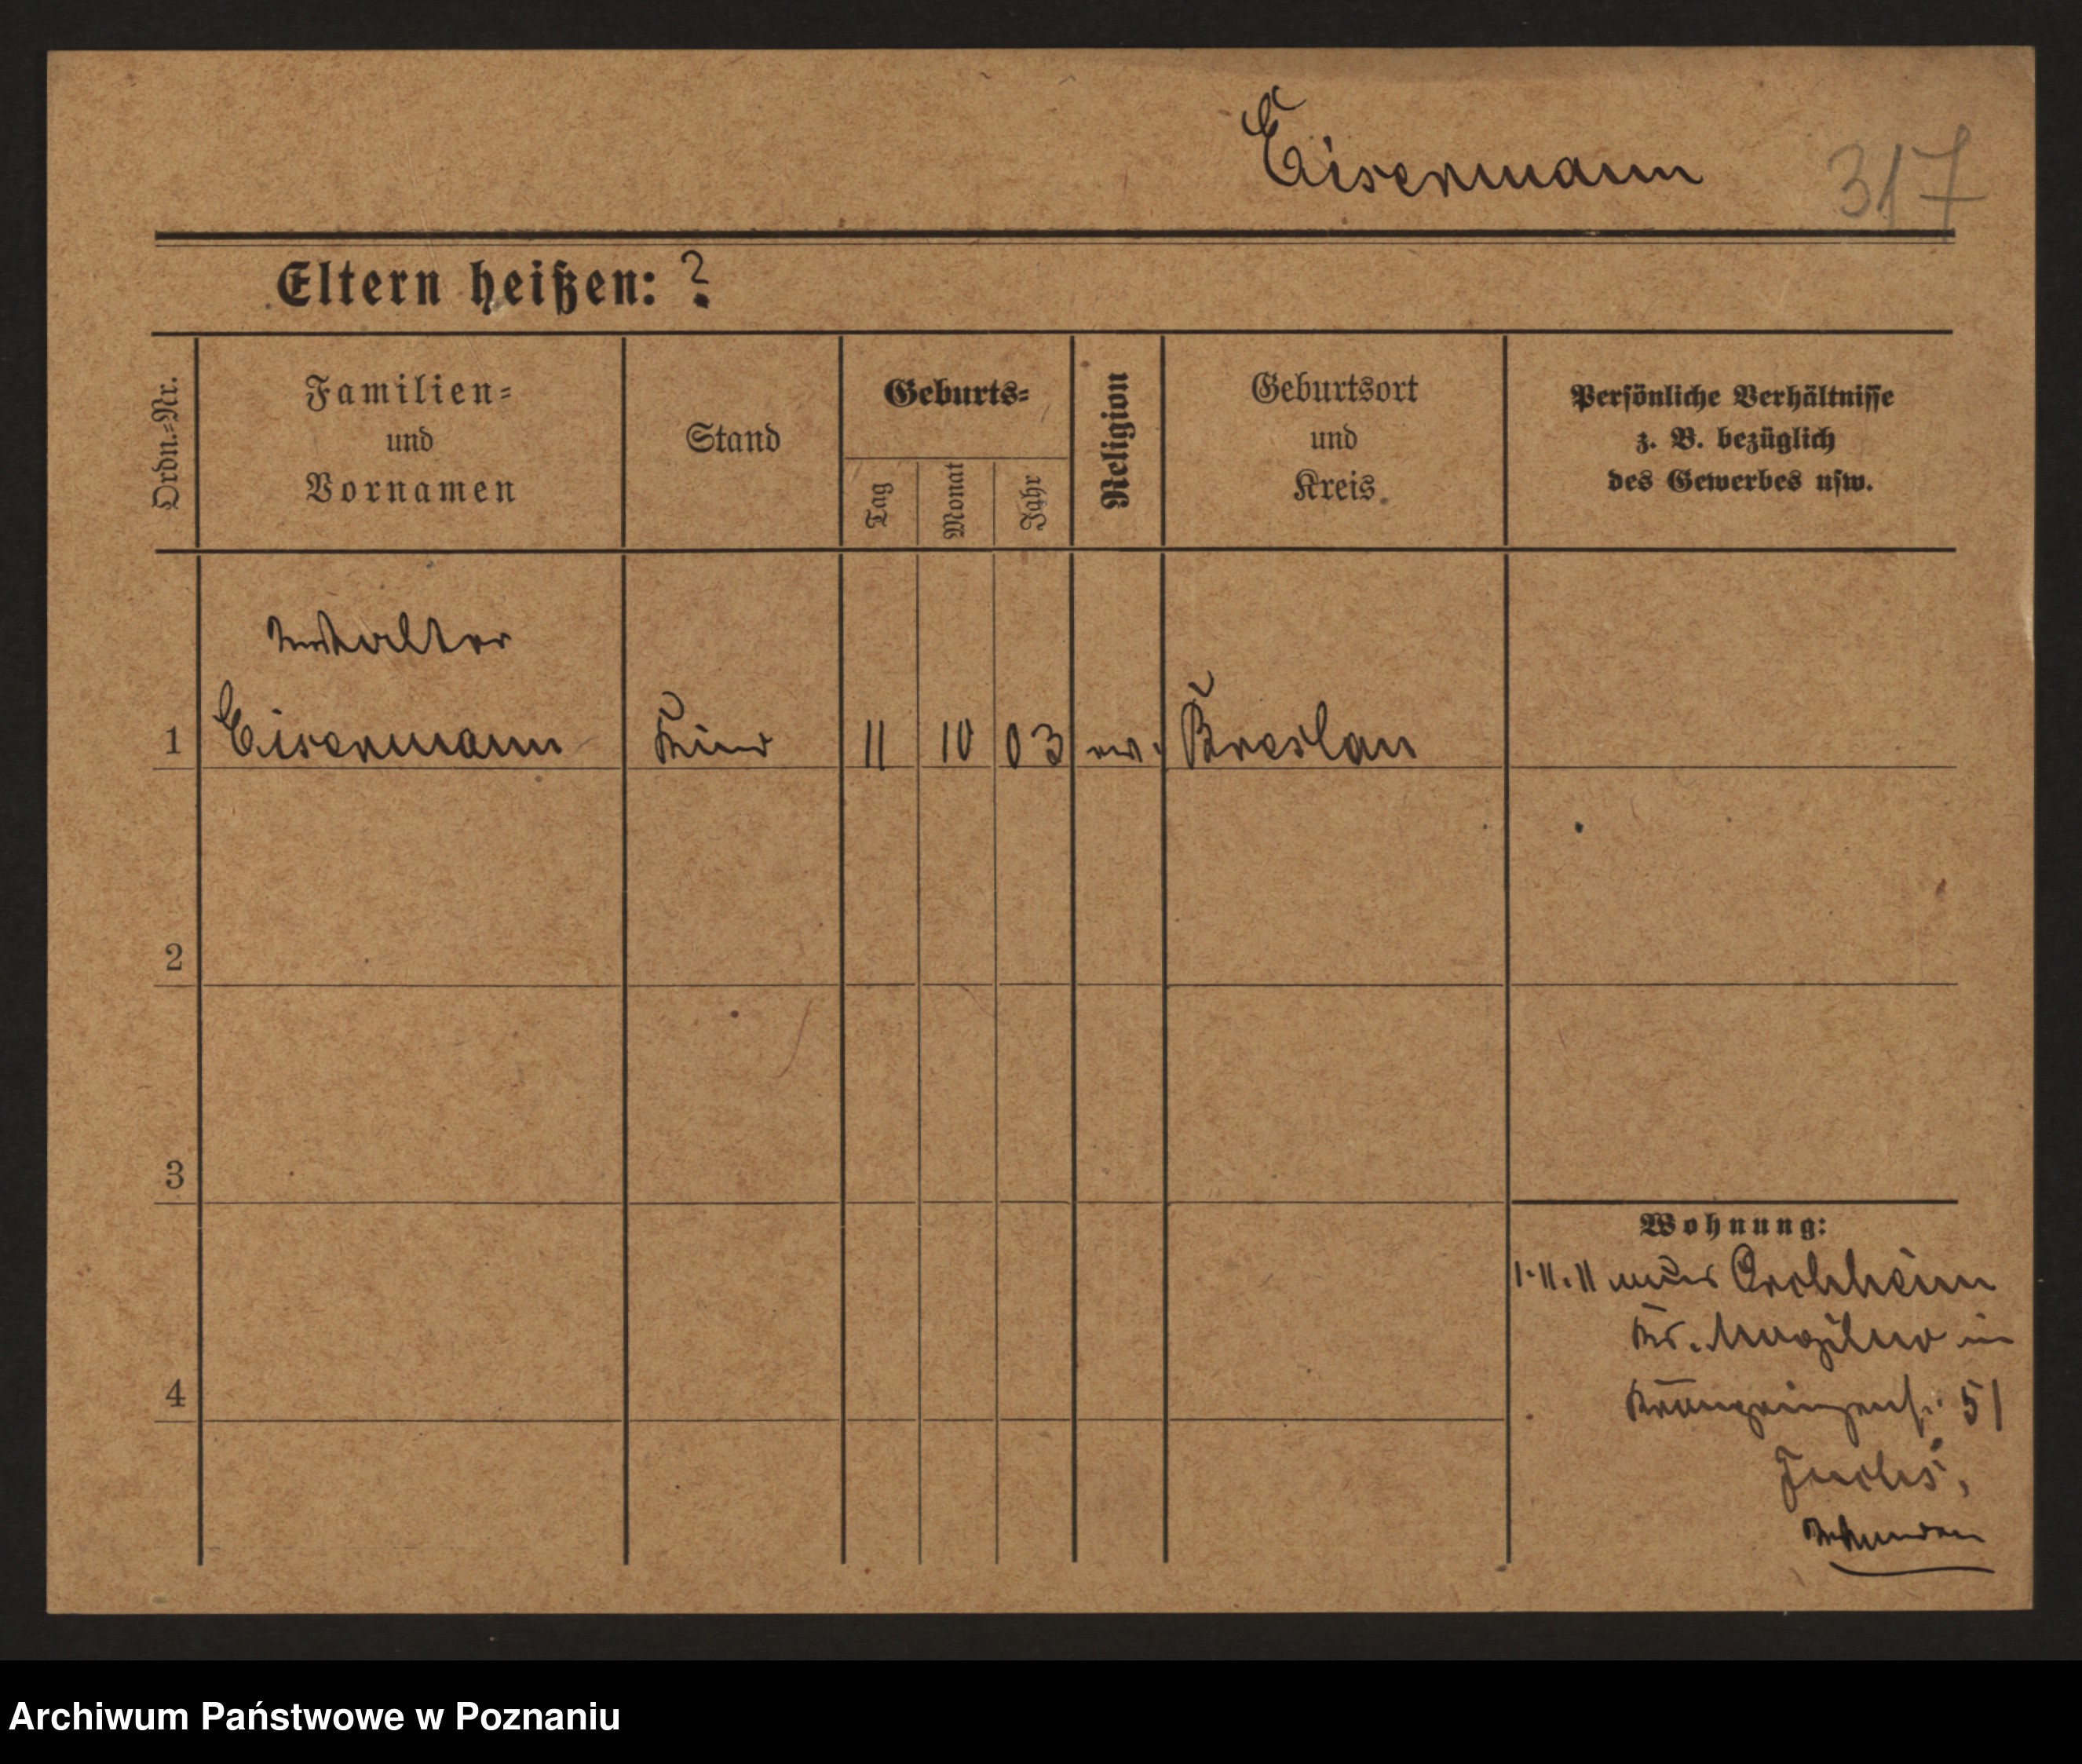 Eisermann 317
Eltern heißen: ?
Ordn.=Nr.
Familien=
und
Vornamen
Stand
Geburts=
Tag
Monat
Jahr
Religion
Geburtsort
und
Kreis
Persönliche Verhältnisse
z. B. bezüglich
des Gewerbes usw.
Walter
1 Eisermann Kind 11 10 03 ev. Breslau
2
3
Wohnung:
1.11.11 nach
Kr. Mogilno in
4
Kronprinzenstr. 51
Fuchs,
Archiwum Państwowe w Poznaniu